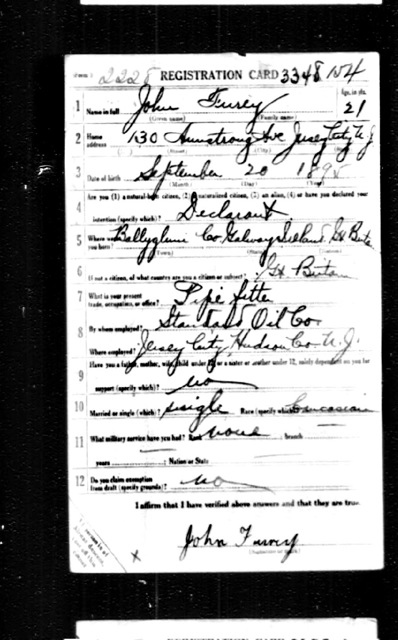 Form 1 2228 REGISTRATION CARD 3348 No 4
1 Name in full John Furey Age, in yrs. 21
(Given name) (Family name)
2 Home address 130 Armstrong Ave Jersey City N J
(No.) (Street) (City)
3 Date of birth September 20
(Month) (Day) (Year)
4 Are you (1) a natural-born citizen, (2) a naturalized citizen, (3) an alien, (4) or have you declared your
intention (specify which)? Declarant
5 Where were you born? Co. Galway Ireland Gt Britain
6 If not a citizen, of what country are you a citizen or subject? Gt Britain
7 What is your present trade, occupation, or office? Pipe fitter
8 By whom employed? Standard Oil Co.
Where employed? Jersey City, Hudson Co. N. J.
9 Have you a father, mother, wife, child under 12, or a sister or brother under 12, solely dependent on you for
support (specify which)? no
10 Married or single (which)? single Race (specify which)? Caucasian
11 What military service have you had? Rank none ; branch
years ; Nation or State
12 Do you claim exemption from draft (specify grounds)? no
I affirm that I have verified above answers and that they are true.
x John Furey
(Signature or mark)